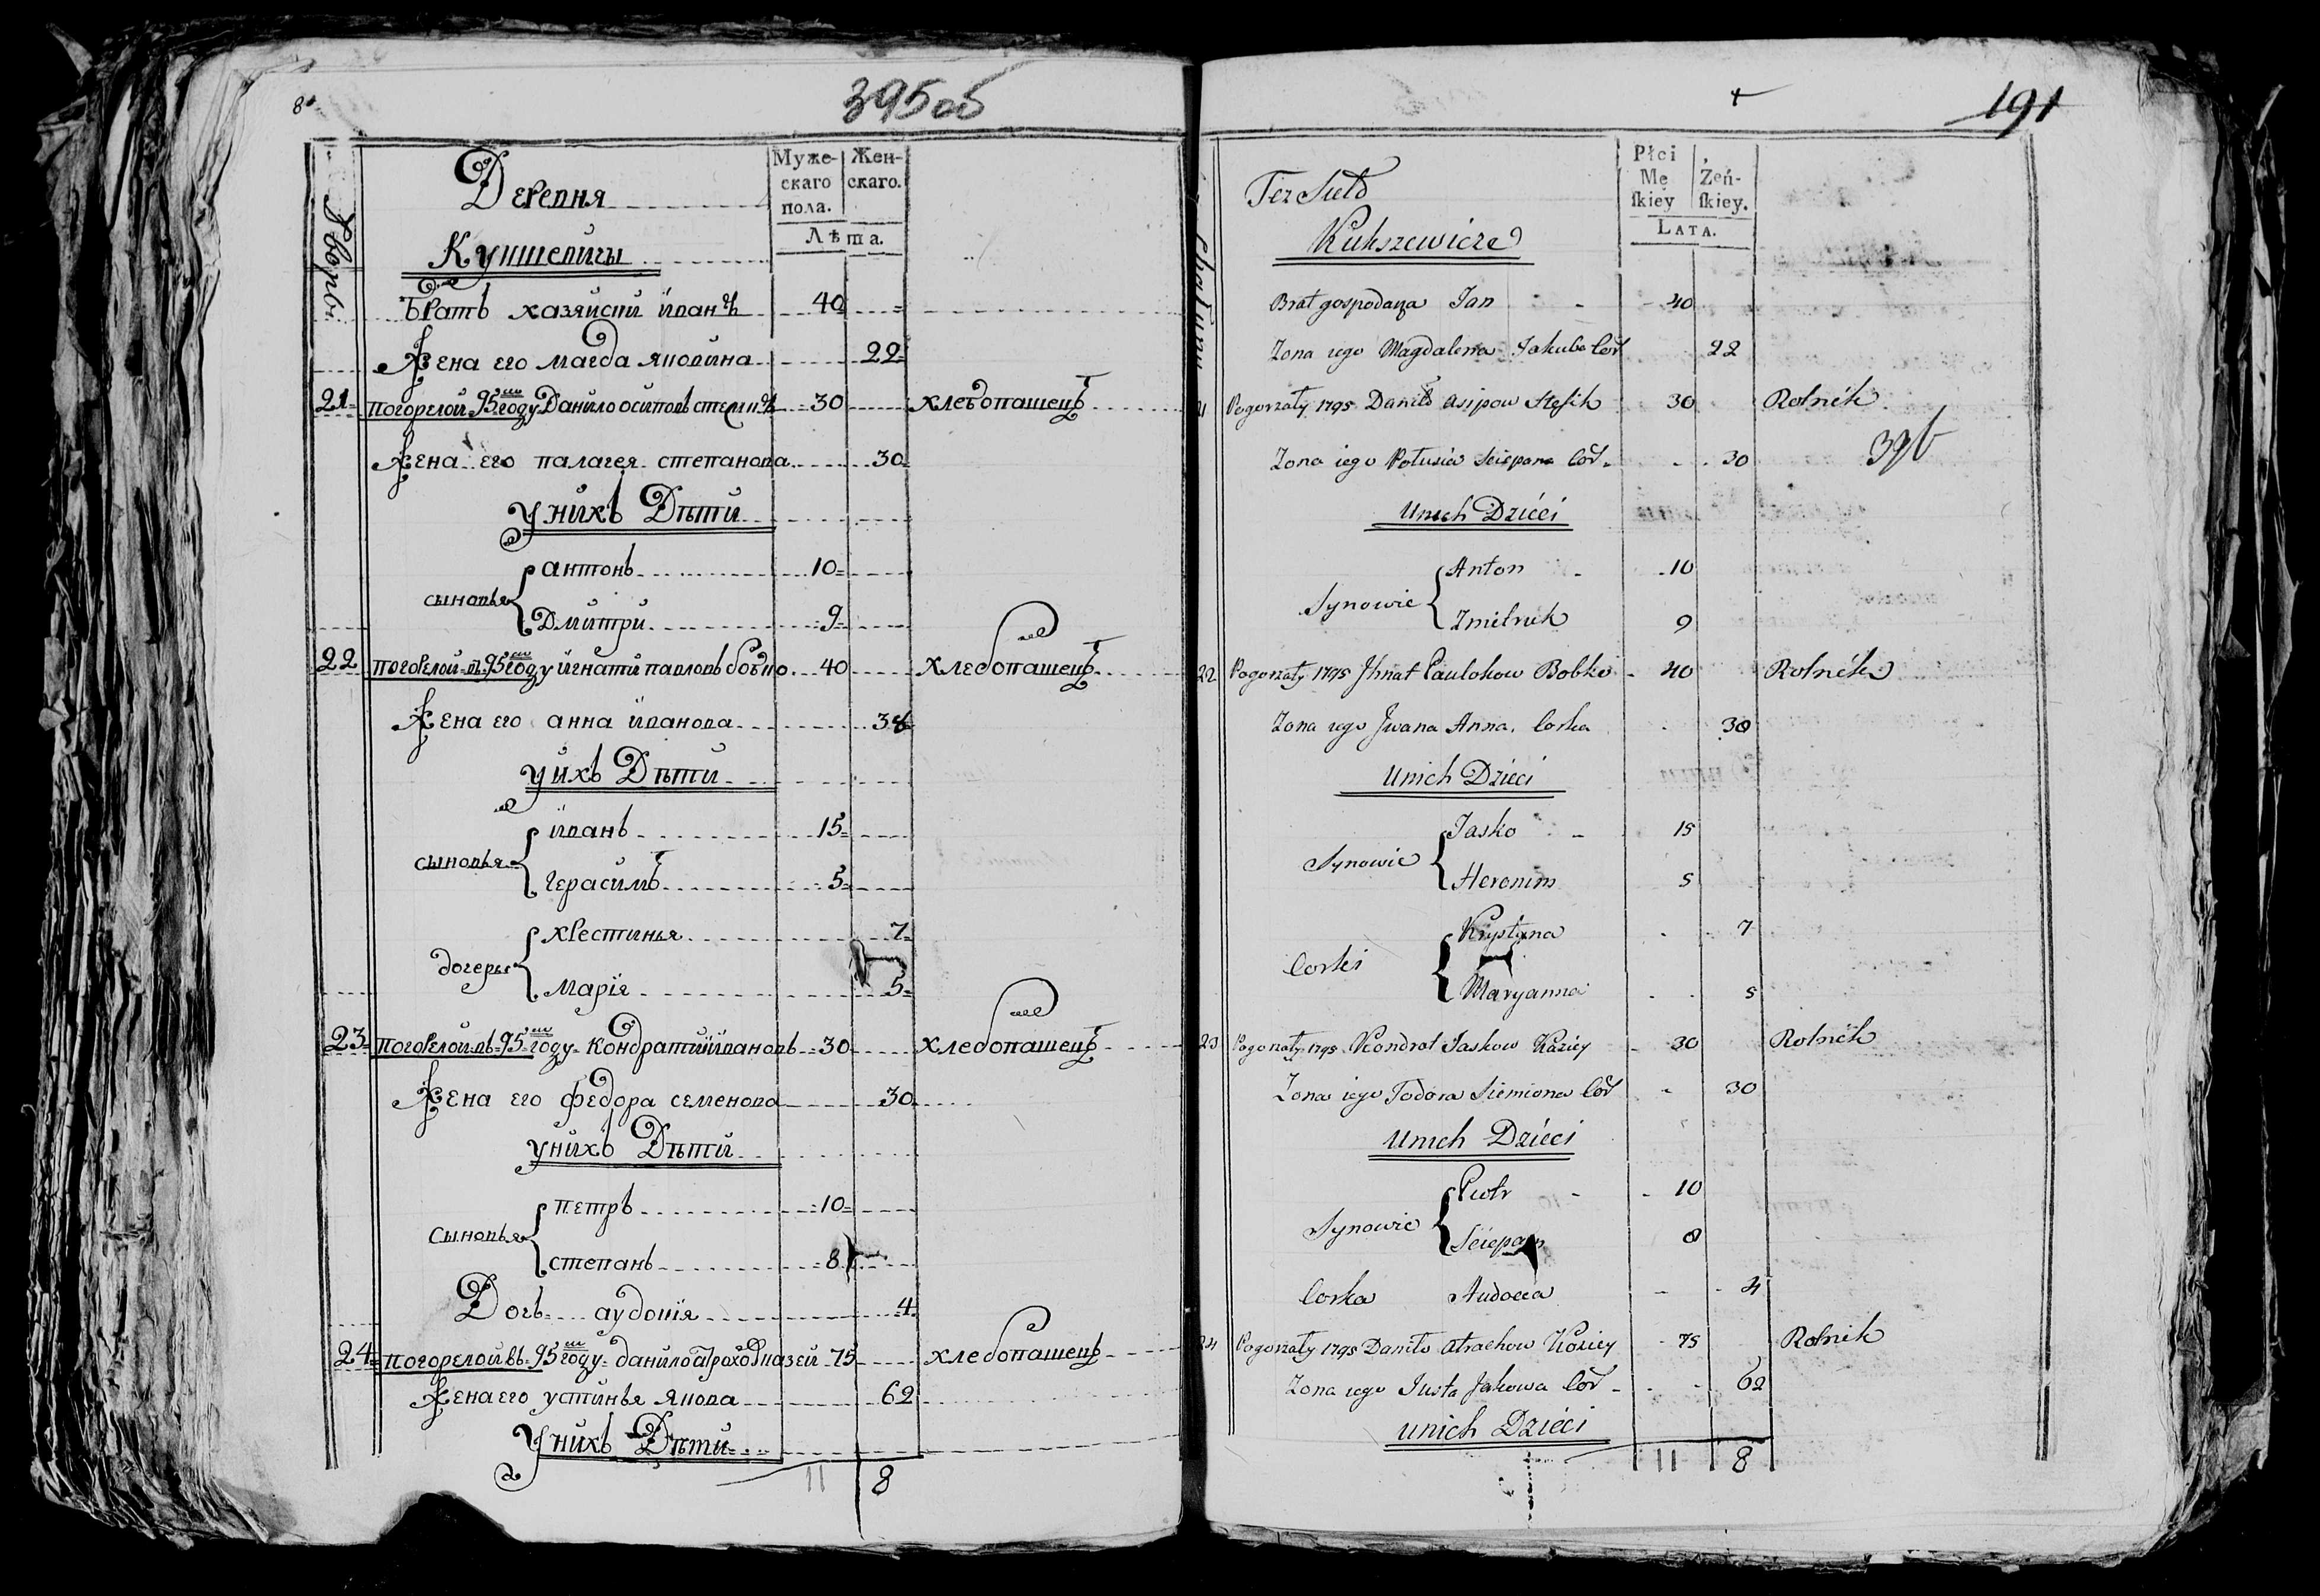 8
395об
Дворы.
Деревня
Мужескаго пола.
Женскаго.
Лѣта.
Кукшевичы
Братъ хазяйскй йванъ 40
Жена его магда яковина 22
21 погорелой 95 году Данило осиповъ 30 хлебопашецъ
Жена его палагея степанова 30
у нйхъ Дѣтй
сыновья { антонъ 10
Дмйтрй 9
22 погорелой въ 95 году йгнатй павловъ бобко 40 хлебопашецъ
Жена его анна йванова 38
у йхъ Дѣти
сыновья { йванъ 15
герасимъ 5
дочеры { хрестинья 7
марія 5
23 погорелой въ 95 году кондратйй йвановъ 30 хлебопашецъ
Жена его федора семенова 30
у нйхъ Дѣтй
сыновья { петръ 10
степанъ 8
Дочь аудокія 4
24 погорелой въ 95 году данило атроховъ казей 75 хлебопашецъ
Жена его устинья якова 62
У нихъ Дѣти
11 8
191
Płci Mę skiey
Żeń- skiey.
LATA.
Też Sieło
Kukszewicze
Brat gospodarza Jan 40
Zona iego Magdalena Jakuba Cór 22
21 Pogorzały 1795 Daniło Asipow Stesik 30 Rolnik
396
Zona iego Połusia Sciepana Cór 30
U nich Dzieci
Synowie { Anton 10
Zmitruk 9
22 Pogorzały 1795 Jhnat Paulokow Bobko 40 Rolnik
Zona iego Jwana Anna Corka 38
U nich Dzieci
Synowie { Jasko 15
Heronim 5
Corki { Krystyna 7
Maryanna 5
23 Pogorzały 1795 Kondrat Jaskow Kaziey 30 Rolnik
Zona iego Todora Siemiona Cór 30
U nich Dzieci
Synowie { Piotr 10
Sciepan 8
Corka Audocia 4
24 Pogorzały 1795 Daniło Atrachow Koziey 75 Rolnik
Zona iego Justa Jakowa Cór 62
U nich Dzieci
11 8